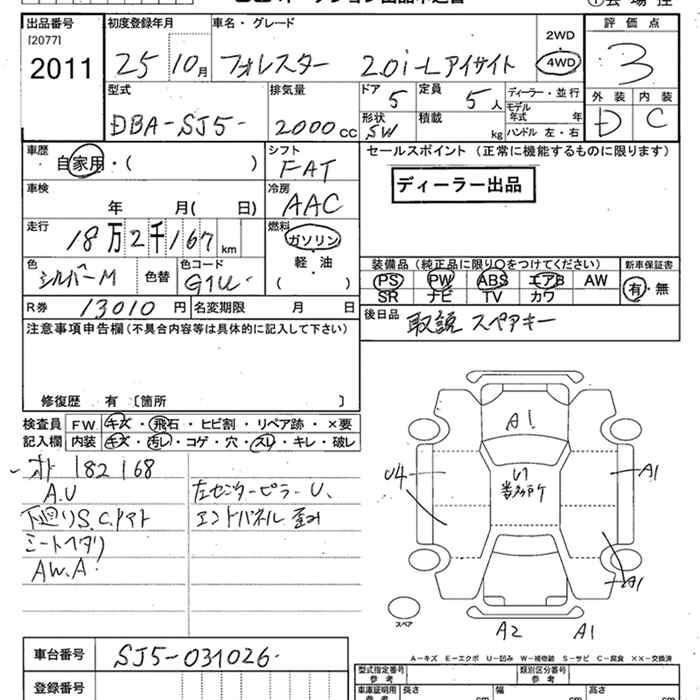 出品番号 初度登録年月 車名・グレード 評価点
[2077]
2011 25 10月 フォレスター 2.0i-Lアイサイト 2WD 4WD 3
型式 排気量 ドア 5 定員 5人 ディーラー・並行 外装 内装
DBA-SJ5- 2000cc 形状 SW 積載 kg モデル年式 年 D C
ハンドル 左・右
車歴 シフト セールスポイント (正常に機能するものに限ります)
自家用・( ) FAT
ディーラー出品
車検 冷房
年 月( 日) AAC
走行 燃料
18万2千167km ガソリン
軽・油
色 色替 色コード ( )
シルバーM G1U 装備品(純正品に限り○をつけてください) 新車保証書
PS PW ABS エアB AW 有・無
SR ナビ TV カワ
R券 13010円 名変期限 月 日
後日品 取説 スペアキー
注意事項申告欄(不具合内容等は具体的に記入して下さい)
修復歴 有 〔箇所 〕
検査員 FW キズ・飛石・ヒビ割・リペア跡・×要
記入欄 内装 キズ・汚レ・コゲ・穴・スレ・キレ・破レ
182168
A.U 左センターピラーU、
下廻りS.C. エンドパネル歪み
シートヘタリ
AW.A
A1
U4 U1 A1
A1
スペア
A2 A1
A-キズ E-エクボ U-凹み W-補修跡 S-サビ C-腐食 ××-交換済
車台番号 SJ5-031026
登録番号
型式指定番号 参考 類別区分番号 参考
車庫証明用 参考 長さ cm 幅 cm 高さ cm